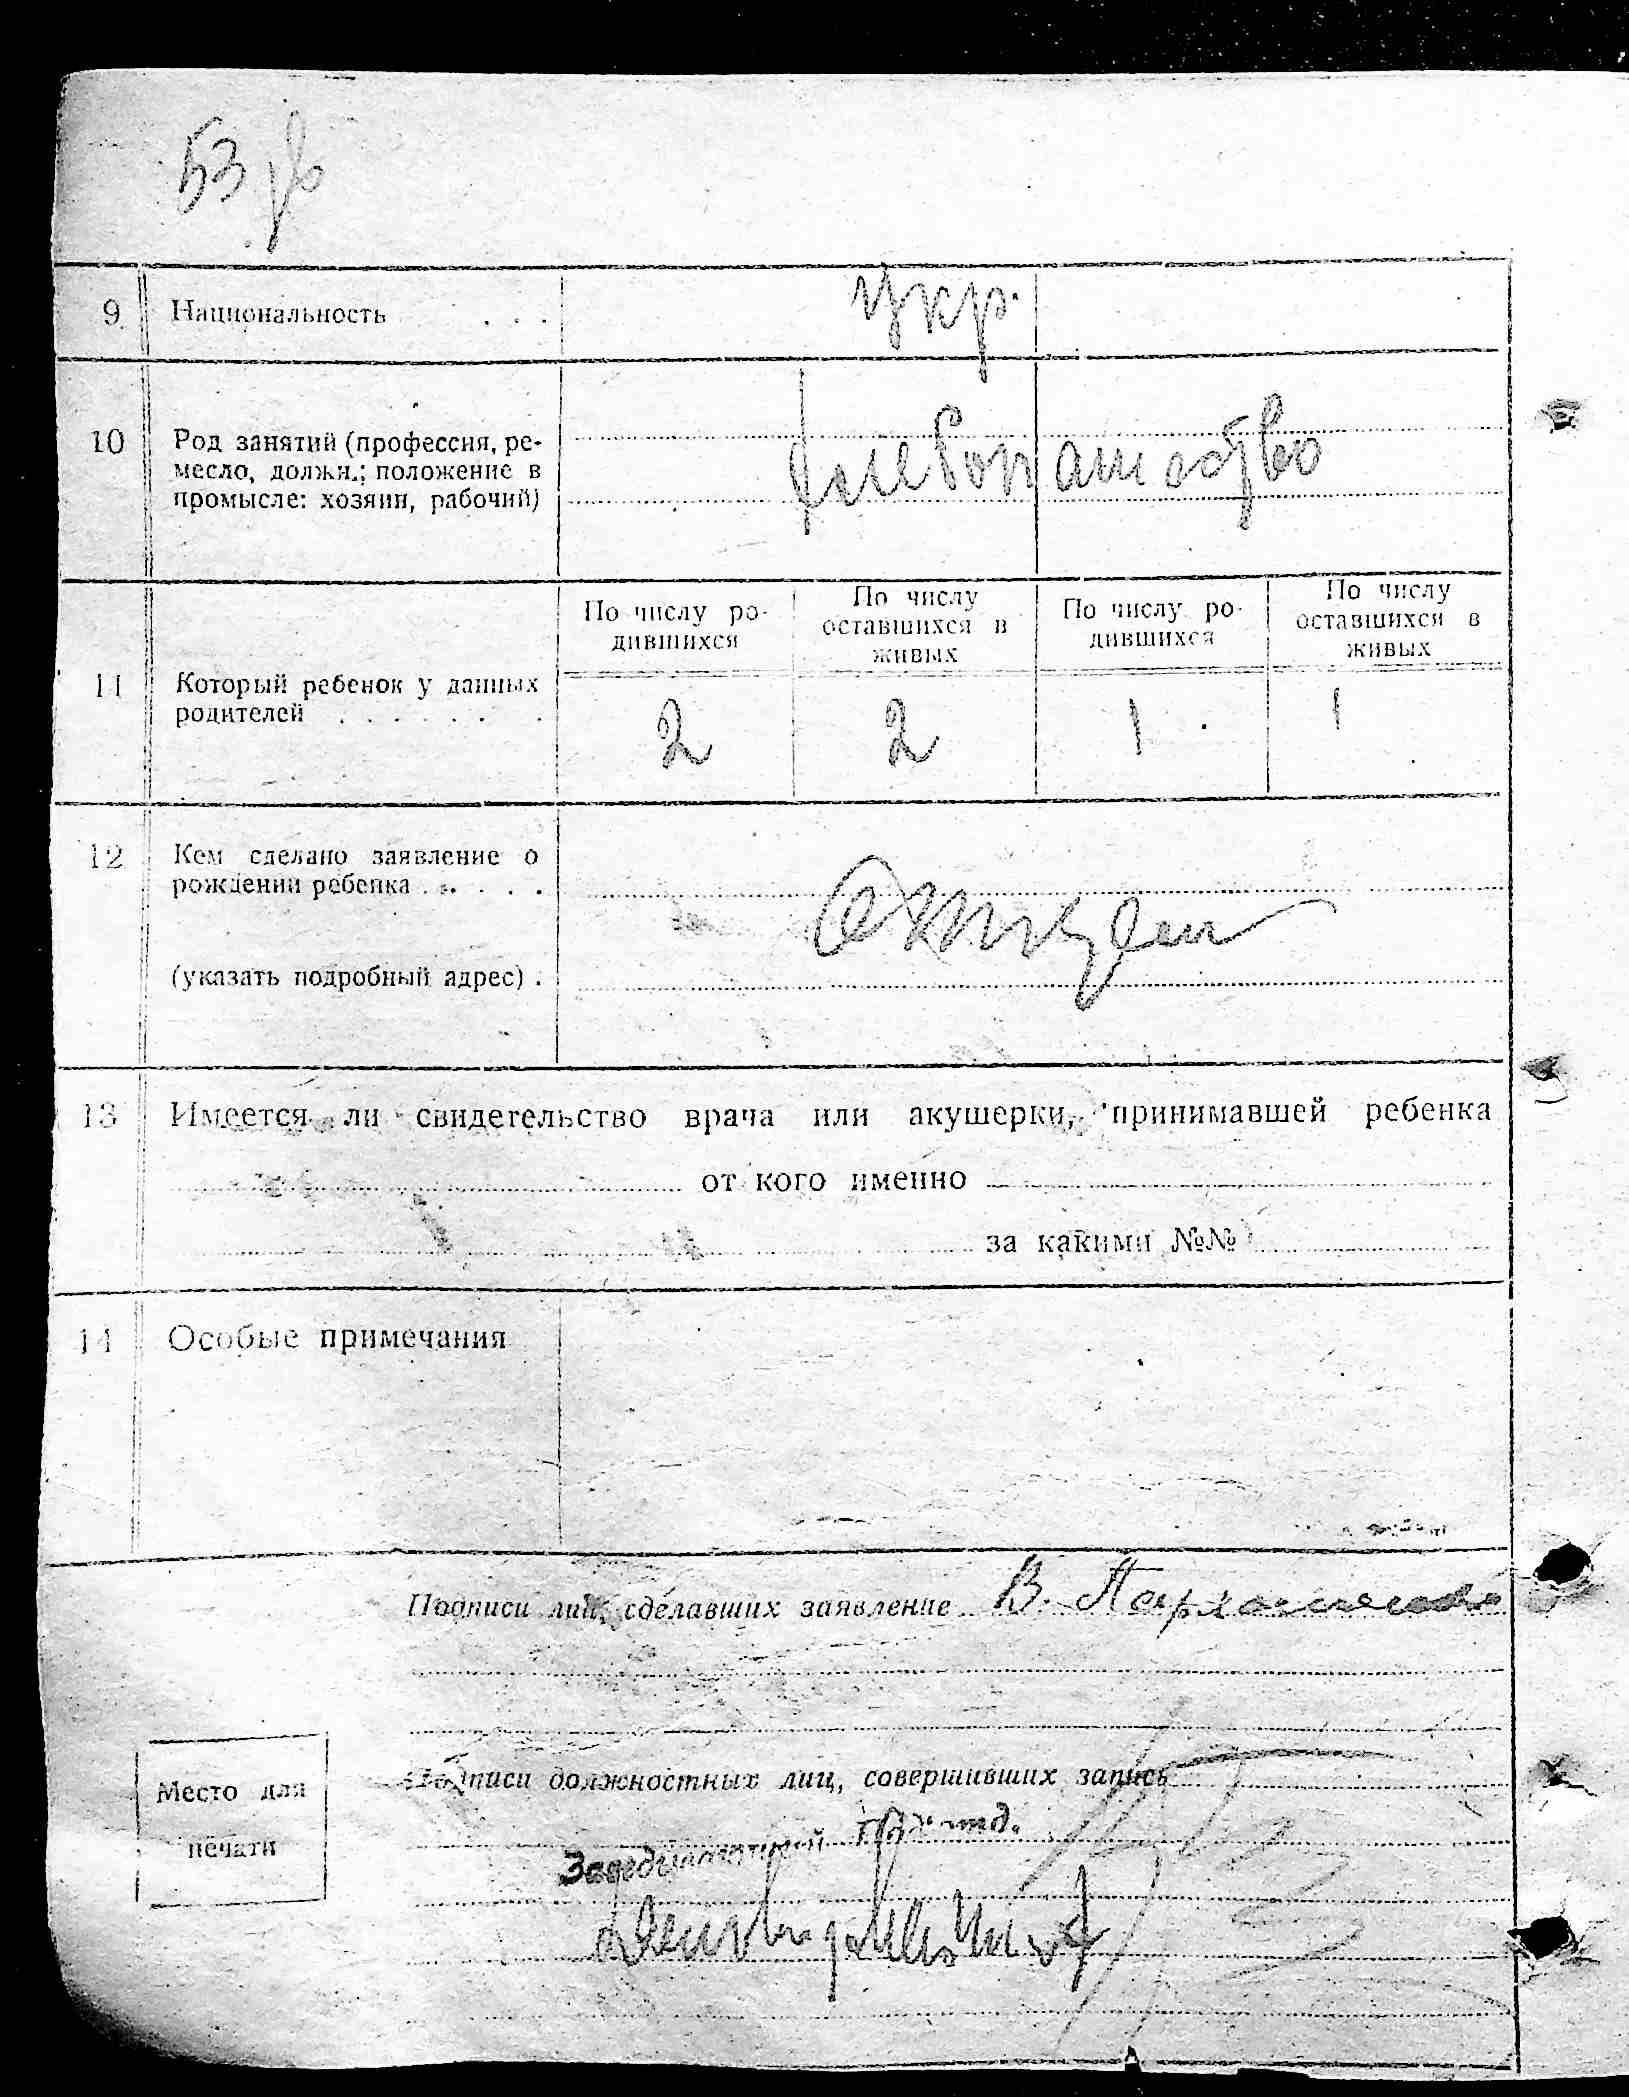 53
9 Национальность . . . укр.
10 Род занятий (профессия, ре-
месло, должн.; положение в
промысле: хозяин, рабочий)
хлебопашество
По числу ро-
дившихся
По числу
оставшихся в
живых
По числу ро-
дившихся
По числу
оставшихся в
живых
11 Который ребенок у данных
родителей . . . . . . .
2 2 1 1
12 Кем сделано заявление о
рождении ребенка . . . . .
(указать подробный адрес) .
13 Имеется ли свидетельство врача или акушерки, принимавшей ребенка
от кого именно
за какими №№
14 Особые примечания
Подписи лиц, сделавших заявление В.
Подписи должностных лиц, совершивших запись
Место для
печати
Заведывающий